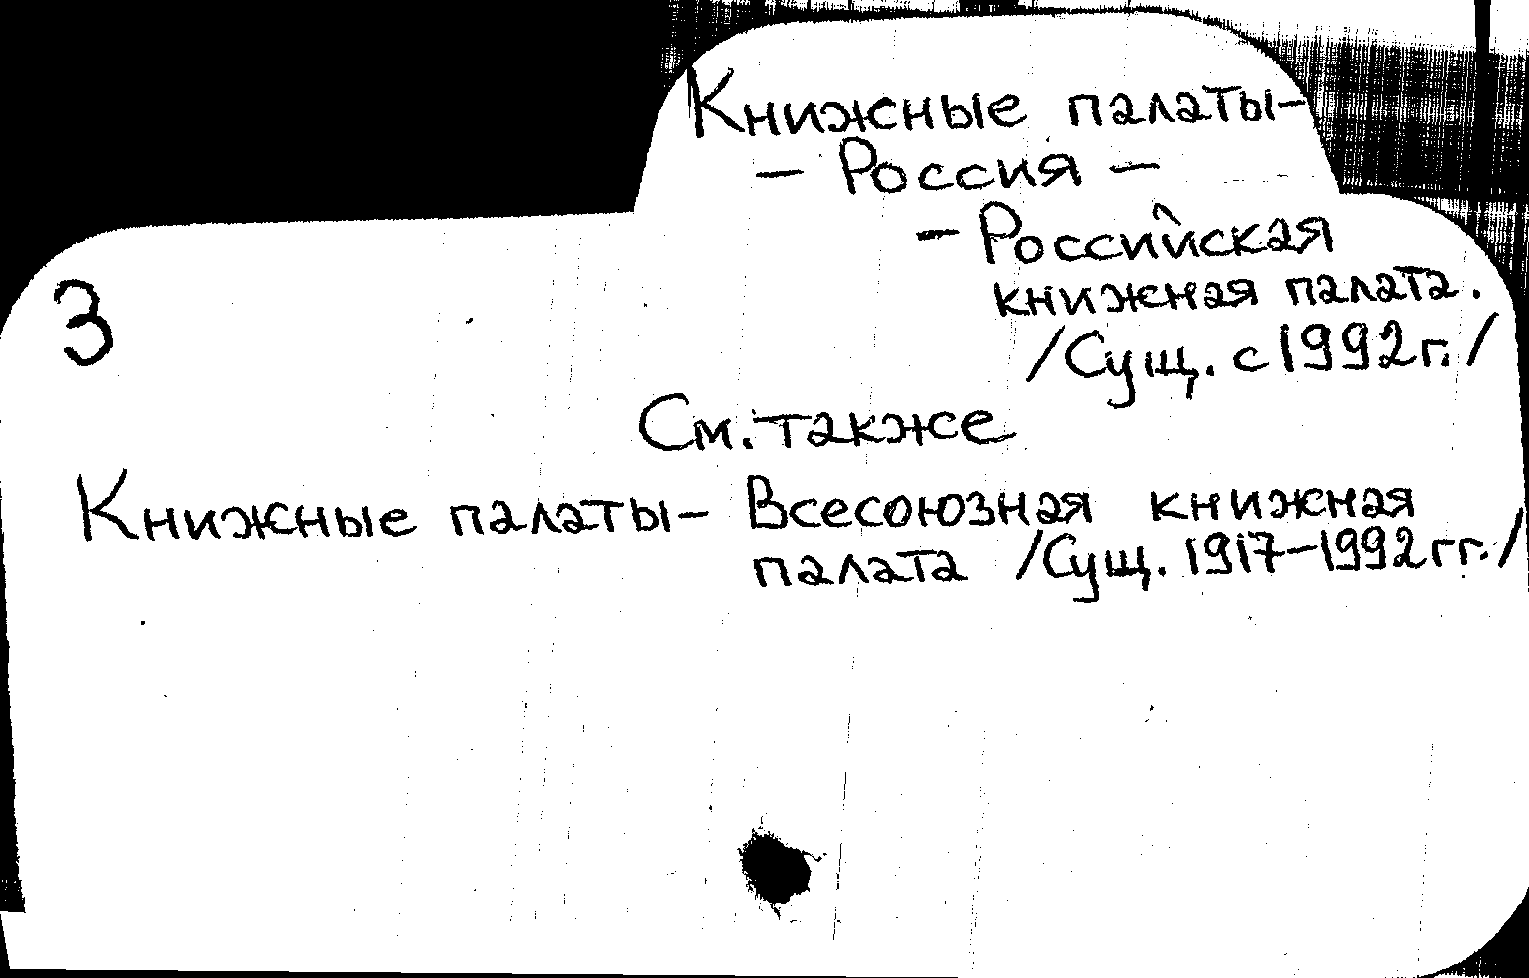 Книжные палаты-
- Россия -
- Российская
книжная палата.
/Сущ. с 1992г./
3
См. также
Книжные палаты- Всесоюзная книжная
палата /Сущ. 1917-1992гг./